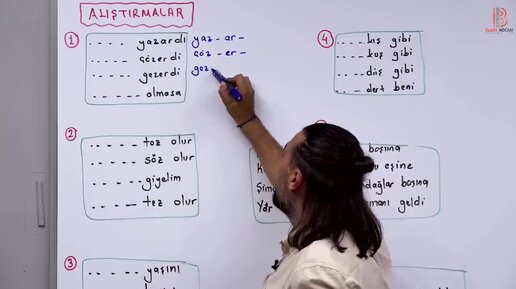 ALIŞTIRMALAR
1
---- yazardı
----- çözerdi
---- gezerdi
----- olmasa
yaz - ar -
çöz - er -
gez
2
----- toz olur
----- söz olur
---- giyelim
----- tez olur
3
----- yaşını
4
---- kış gibi
---- kuş gibi
---- düş gibi
---- dert beni
başına
eşine
dağlar başına
geldi